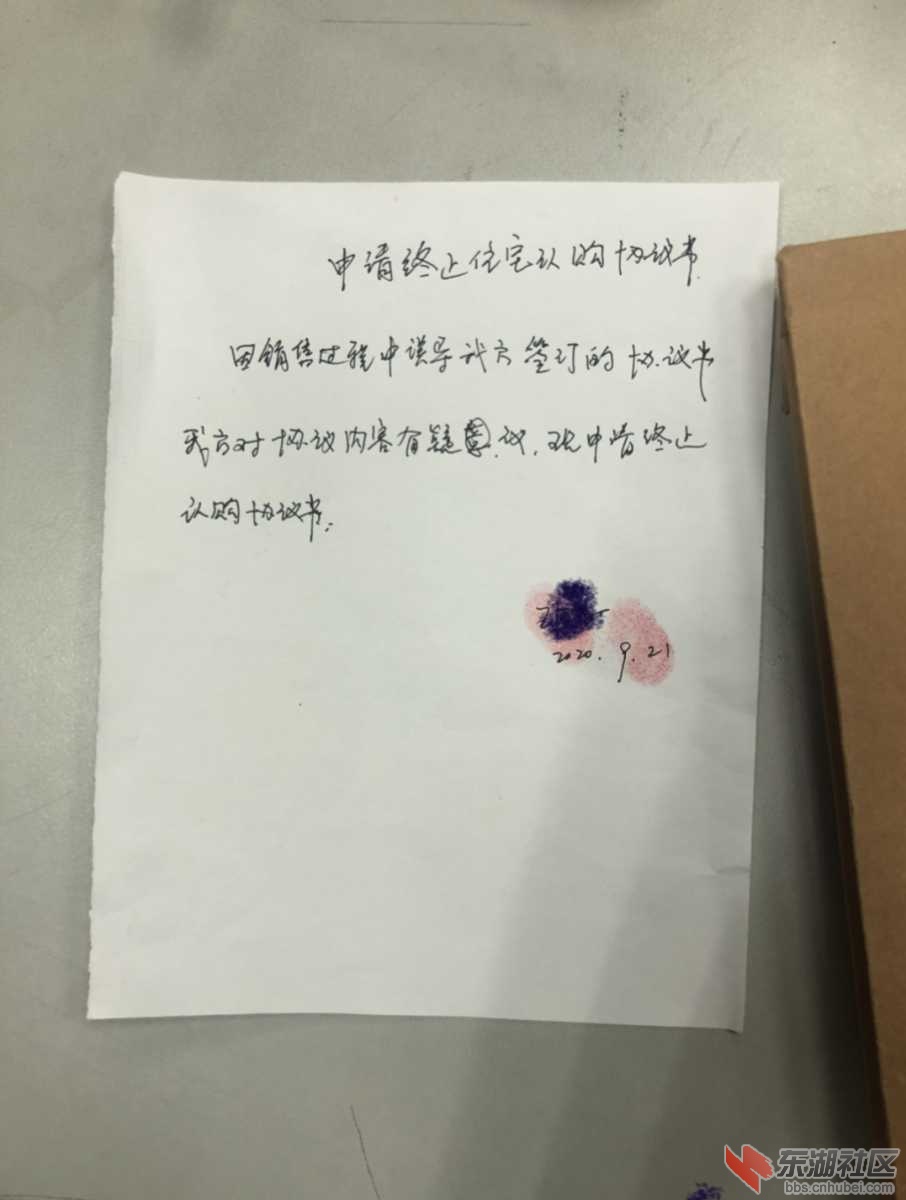 申请终止住宅认购协议书
因销售过程中误导我方签订的协议书
我方对协议内容有疑议,现申请终止
认购协议书.
2020.9.21
东湖社区
bbs.cnhubei.com